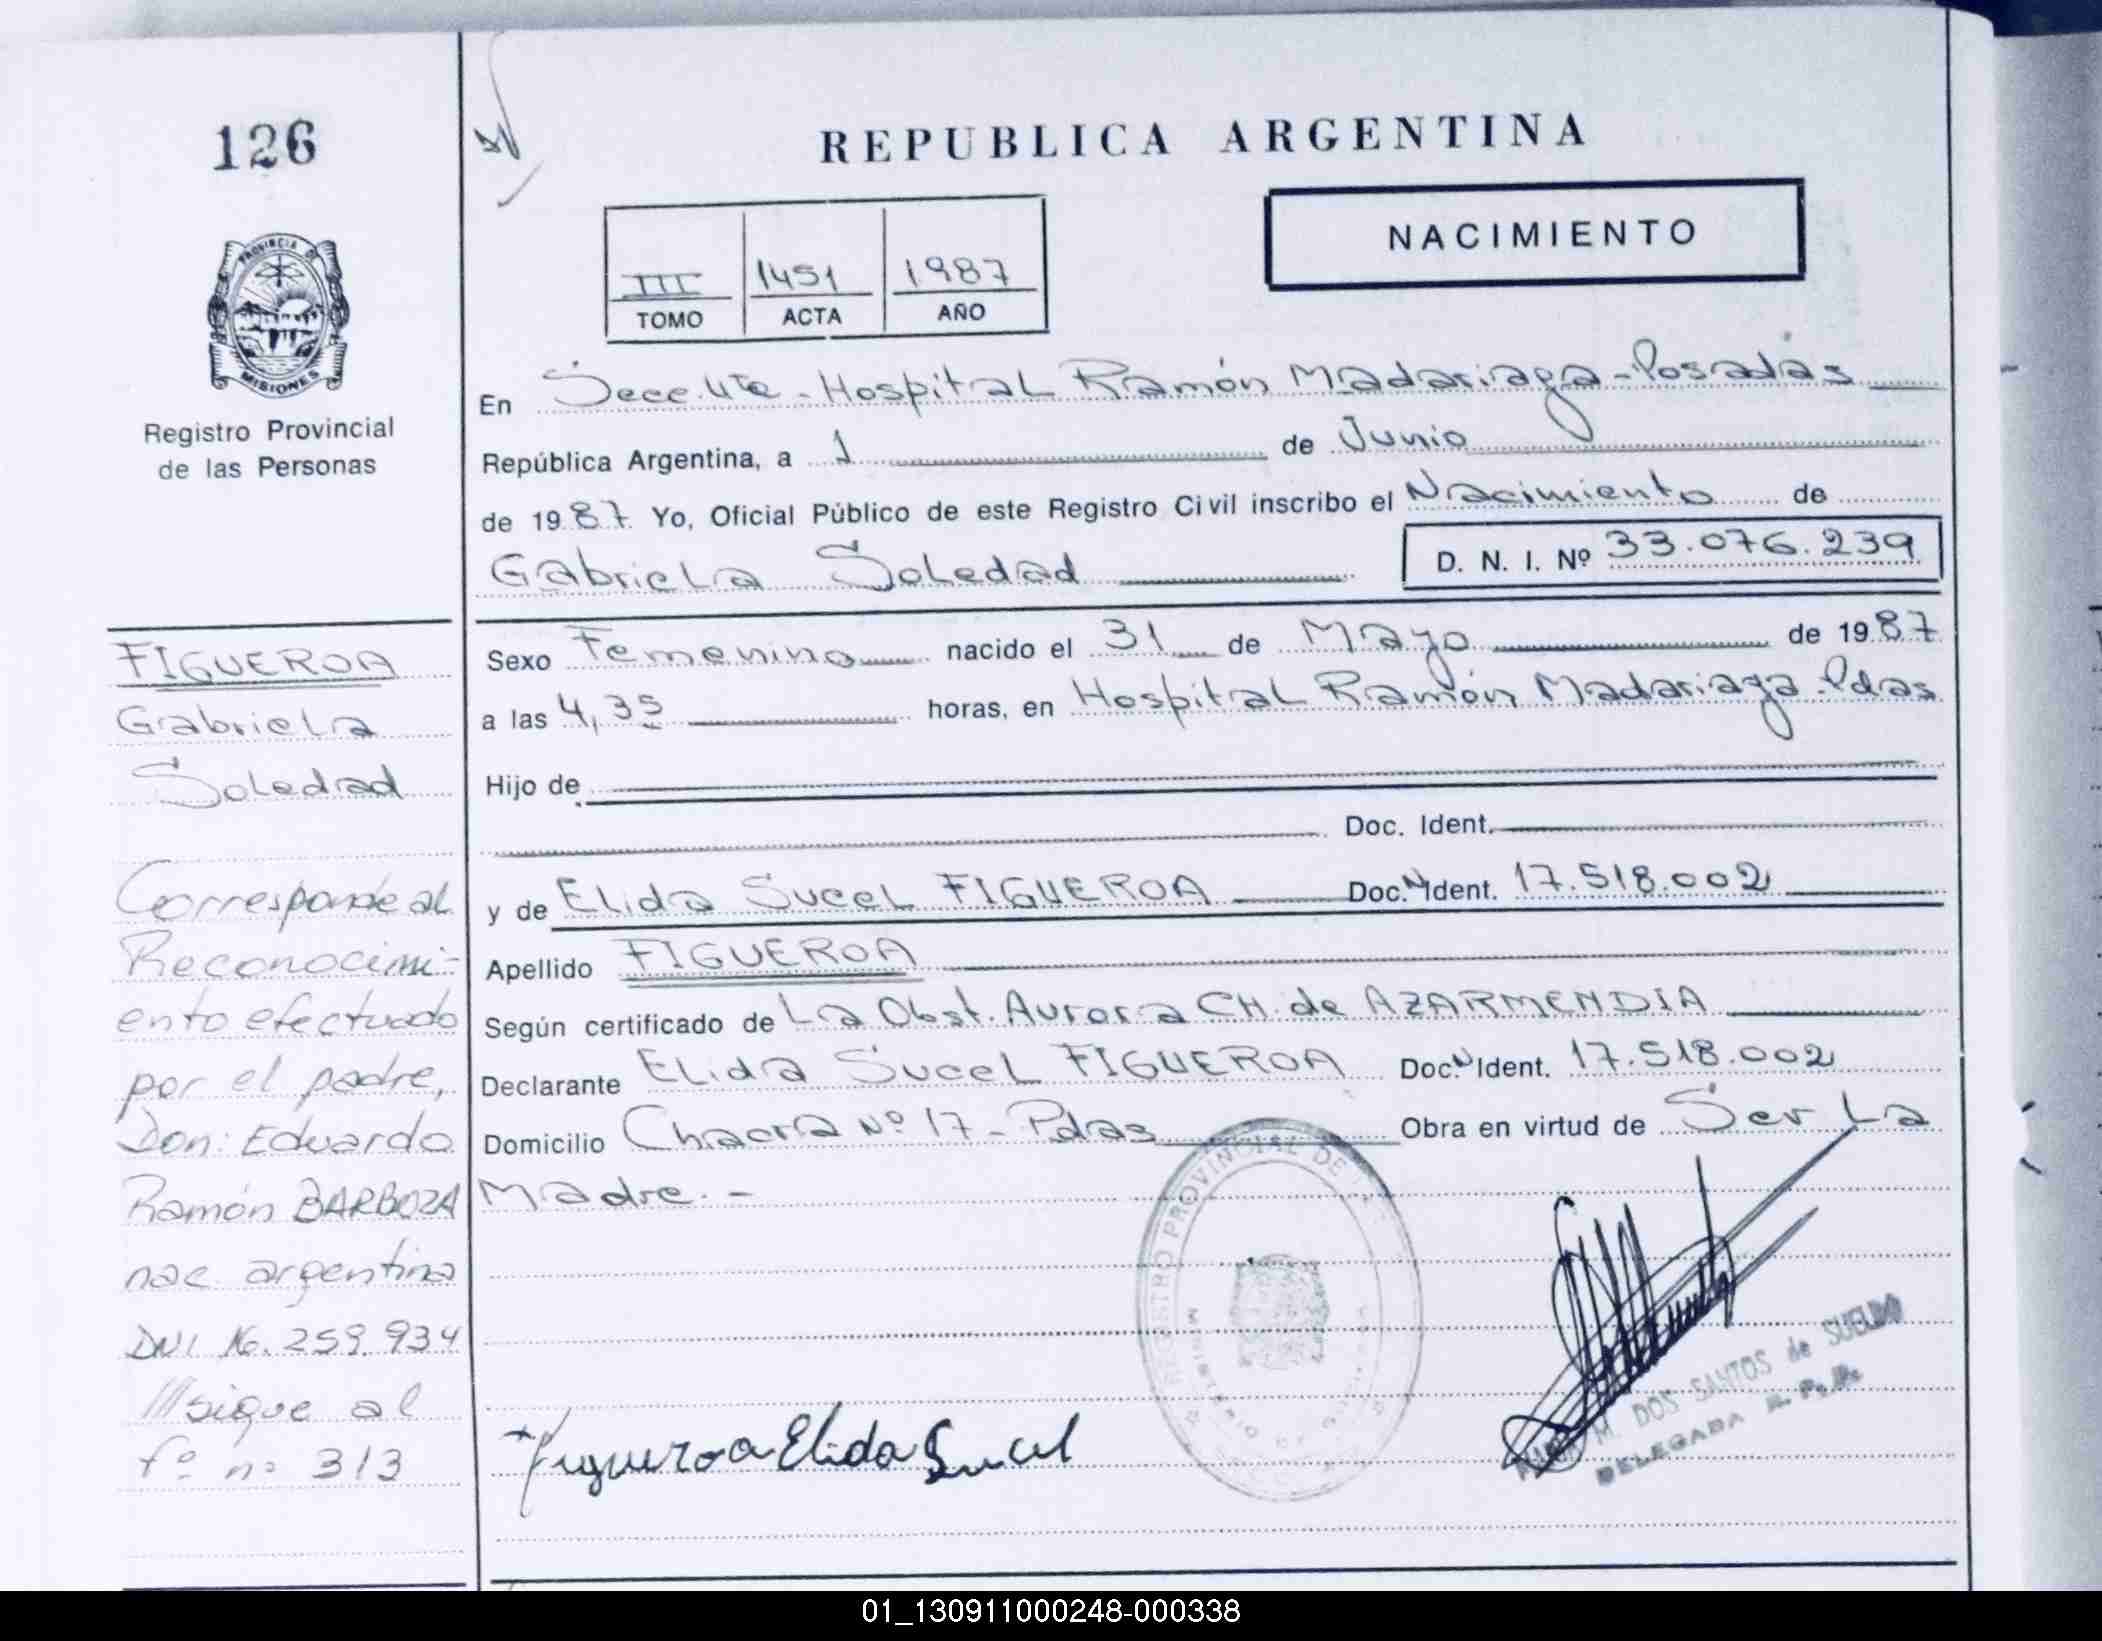 126
PROVINCIA DE
MISIONES
Registro Provincial
de las Personas
FIGUEROA
Gabriela
Soledad
Corresponde al
Reconocimi-
ento efectuado
por el padre,
Don: Eduardo
Ramón BARBOZA
nac. argentina
DNI 16.259.934
///sigue al
fº nº 313
REPUBLICA ARGENTINA
III 1451 1987
TOMO ACTA AÑO
NACIMIENTO
En Secc. 4ta - Hospital Ramón Madariaga - Posadas
República Argentina, a 1 de Junio
de 1987 Yo, Oficial Público de este Registro Civil inscribo el Nacimiento de
Gabriela Soledad D. N. I. Nº 33.076.239
Sexo Femenino nacido el 31 de Mayo de 1987
a las 4,35 horas, en Hospital Ramón Madariaga - Pdas
Hijo de
Doc. Ident.
y de Elida Sucel FIGUEROA Doc. Ident. 17.518.002
Apellido FIGUEROA
Según certificado de La Obst. Aurora CH. de AZARMENDIA
Declarante Elida Sucel FIGUEROA Doc. Ident. 17.518.002
Domicilio Chacra Nº 17 - Pdas Obra en virtud de Ser La
Madre. -
REGISTRO PROVINCIAL DE
Figueroa Elida Sucel
M. DOS SANTOS de SUELDO
DELEGADA R. P. P.
01_130911000248-000338